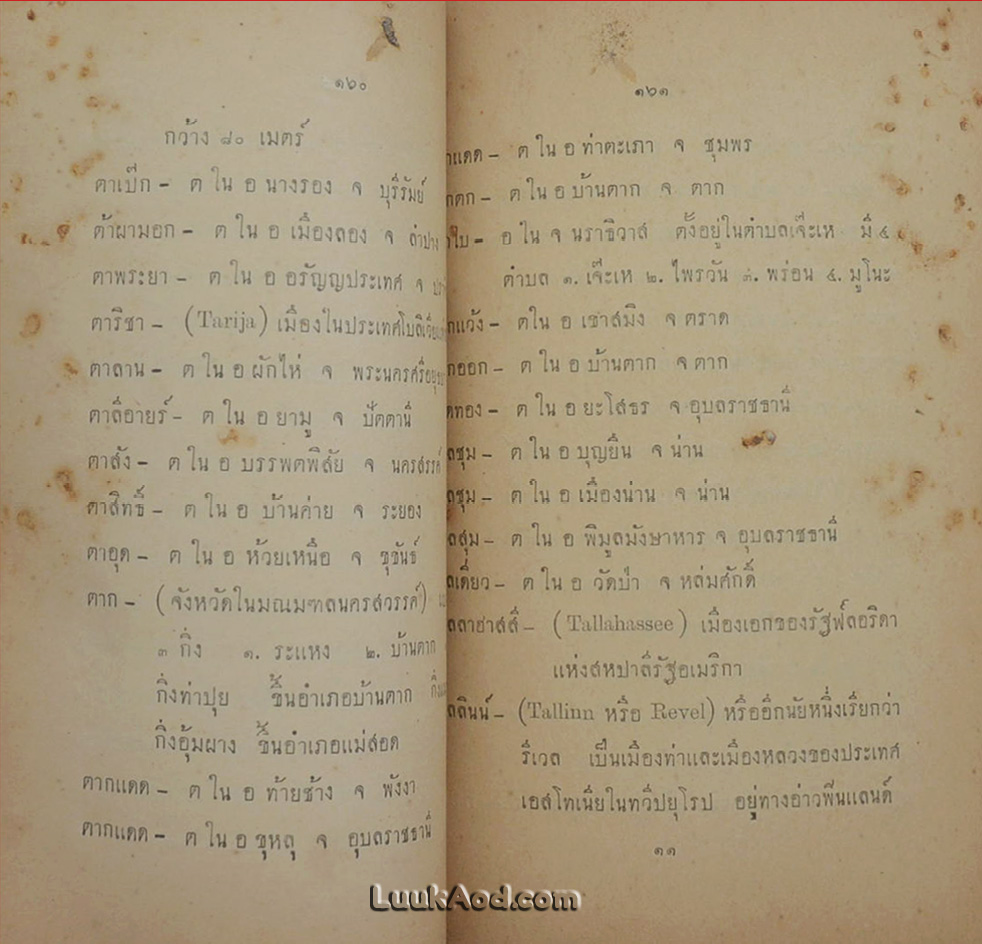 ๑๖๐
กว้าง ๘๐ เมตร์
ตาเป๊ก – ต ใน อ นางรอง จ บุรีรัมย์
ต้าผามอก – ต ใน อ เมืองลอง จ ลำปาง
ตาพระยา – ต ใน อ อรัญญประเทศ จ
ตาริชา – (Tarija) เมืองในประเทศโบลิเวีย
ตาลาน – ต ใน อ ผักไห่ จ พระนครศรีอยุธ
ตาลีอายร์ – ต ใน อ ยามู จ ปัตตานี
ตาสัง – ต ใน อ บรรพตพิสัย จ นครสวรรค์
ตาสิทธิ์ – ต ใน อ บ้านค่าย จ ระยอง
ตาอุด – ต ใน อ ห้วยเหนือ จ ขุขันธ์
ตาก – (จังหวัดในมณฑลนครสวรรค์)
๓ กิ่ง ๑. ระแหง ๒. บ้านตาก
กิ่งท่าปุย ขึ้นอำเภอบ้านตาก
กิ่งอุ้มผาง ขึ้นอำเภอแม่สอด
ตากแดด – ต ใน อ ท้ายช้าง จ พังงา
ตากแดด – ต ใน อ ขุหลุ จ อุบลราชธานี
๑๖๑
กแดด – ต ใน อ ท่าตะเภา จ ชุมพร
กตก – ต ใน อ บ้านตาก จ ตาก
กใบ – อ ใน จ นราธิวาส ตั้งอยู่ในตำบลเจ๊ะเห มี ๔
ตำบล ๑. เจ๊ะเห ๒. ไพรวัน ๓. พร่อน ๔. มูโนะ
กแว้ง – ต ใน อ เขาสมิง จ ตราด
กออก – ต ใน อ บ้านตาก จ ตาก
ดทอง – ต ใน อ ยะโสธร จ อุบลราชธานี
ลชุม – ต ใน อ บุญยืน จ น่าน
ลชุม – ต ใน อ เมืองน่าน จ น่าน
ลสุม – ต ใน อ พิมูลมังษาหาร จ อุบลราชธานี
ลเดี่ยว – ต ใน อ วัดป่า จ หล่มศักดิ์
ลลาฮาสสี – (Tallahassee) เมืองเอกของรัฐฟลอริดา
แห่งสหปาลีรัฐอเมริกา
ลลินน์ – (Tallinn หรือ Revel) หรืออีกนัยหนึ่งเรียกว่า
รีเวล เป็นเมืองท่าและเมืองหลวงของประเทศ
เอสโทเนียในทวีปยุโรป อยู่ทางอ่าวฟินแลนด์
๑๑
LuukAod.com